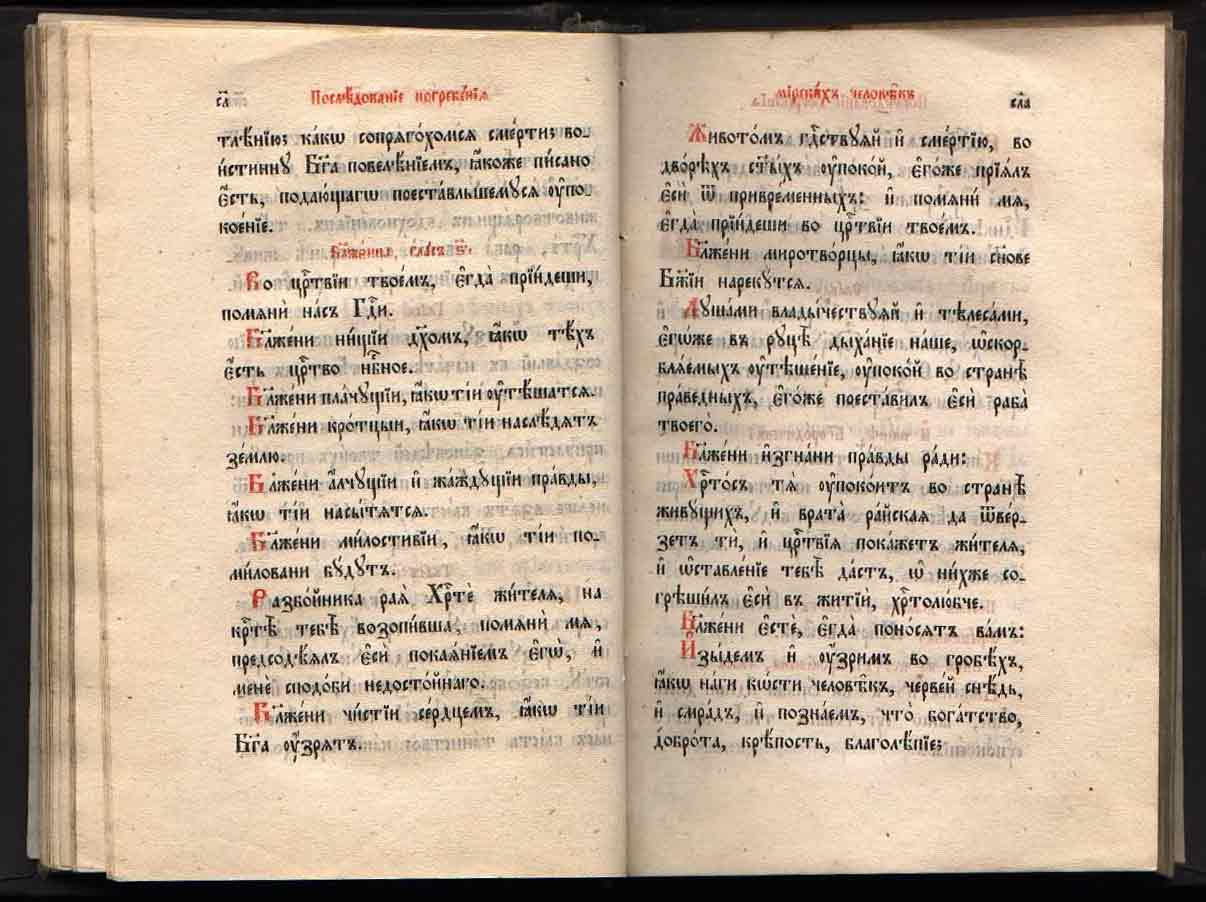 сл҃
Послѣ́дованїе погребе́нїѧ
тлѣ́нїю; ка́кѡ сопрѧго́хомсѧ сме́рти; во-
и́стиннꙋ Бг҃а повелѣ́нїемъ, ꙗ҆́коже пи́сано
є҆́сть, подаю́щагѡ преста́вльшемꙋсѧ ᲂу҆по-
кое́нїе.
Бл҃же́нны, гла́съ ѕ҃.
Во црⷭ҇твїи твое́мъ, є҆гда̀ прїи́деши,
помѧнѝ на́съ Гдⷭ҇и.
Бл҃же́ни ни́щїи дх҃омъ, ꙗ҆́кѡ тѣ́хъ
є҆́сть црⷭ҇тво нбⷭ҇ное.
Бл҃же́ни пла́чꙋщїи, ꙗ҆́кѡ ті́и ᲂу҆тѣ́шатсѧ.
Бл҃же́ни кро́тцыи, ꙗ҆́кѡ ті́и наслѣ́дѧтъ
зе́млю.
Бл҃же́ни а҆́лчꙋщїи и҆ жа́ждꙋщїи пра́вды,
ꙗ҆́кѡ ті́и насы́тѧтсѧ.
Бл҃же́ни ми́лостивїи, ꙗ҆́кѡ ті́и по-
ми́ловани бꙋ́дꙋтъ.
Разбо́йника раѧ̀ Хрⷭ҇тѐ жи́телѧ, на
крⷭ҇тѣ̀ тебѣ̀ возопи́вша, помѧни́ мѧ,
предсодѣ́лалъ є҆сѝ покаѧ́нїемъ є҆гѡ̀, и҆
менѐ сподо́би недосто́йнаго.
Бл҃же́ни чи́стїи се́рдцемъ, ꙗ҆́кѡ ті́и
Бг҃а ᲂу҆́зрѧтъ.
мїрски́хъ человѣ́къ
сл҃а
Живото́мъ гдⷭ҇ствꙋѧй и҆ сме́ртїю, во
дво́рѣхъ ст҃ы́хъ ᲂу҆поко́й, є҆го́же прїѧ́лъ
є҆сѝ ѿ привре́менныхъ: и҆ помѧни́ мѧ,
є҆гда̀ прїи́деши во црⷭ҇твїи твое́мъ.
Бл҃же́ни миротво́рцы, ꙗ҆́кѡ ті́и сн҃ове
Бж҃їи нареку́тсѧ.
Дꙋша́ми влады́чествꙋѧй и҆ тѣлеса́ми,
є҆гѡ́же въ рꙋцѣ̀ дыха́нїе на́ше, ѡ҆скор-
блѧ́емыхъ ᲂу҆тѣше́нїе, ᲂу҆поко́й во странѣ̀
пра́ведныхъ, є҆го́же преста́вилъ є҆сѝ раба̀
твоего̀.
Бл҃же́ни и҆згна́ни пра́вды ра́ди:
Хрⷭ҇то́съ тѧ̀ ᲂу҆поко́итъ во странѣ̀
живꙋ́щихъ, и҆ врата̀ ра́йскаѧ да ѿве́р-
зетъ тѝ, и҆ црⷭ҇твїѧ пока́жетъ жи́телѧ,
и҆ ѡ҆ставле́нїе тебѣ̀ да́стъ, ѡ҆ ни́хже со-
грѣши́лъ є҆сѝ въ житїѝ, хрⷭ҇толю́бче.
Бл҃же́ни є҆стѐ, є҆гда̀ поно́сѧтъ ва́мъ:
И҆зы́демъ и҆ ᲂу҆́зримъ во гробѣ́хъ,
ꙗ҆́кѡ на́ги кѡ́сти человѣ́къ, черве́й снѣ́дь,
и҆ смра́дъ, и҆ позна́емъ, что̀ бога́тство,
добро́та, крѣ́пость, благолѣ́пїе;